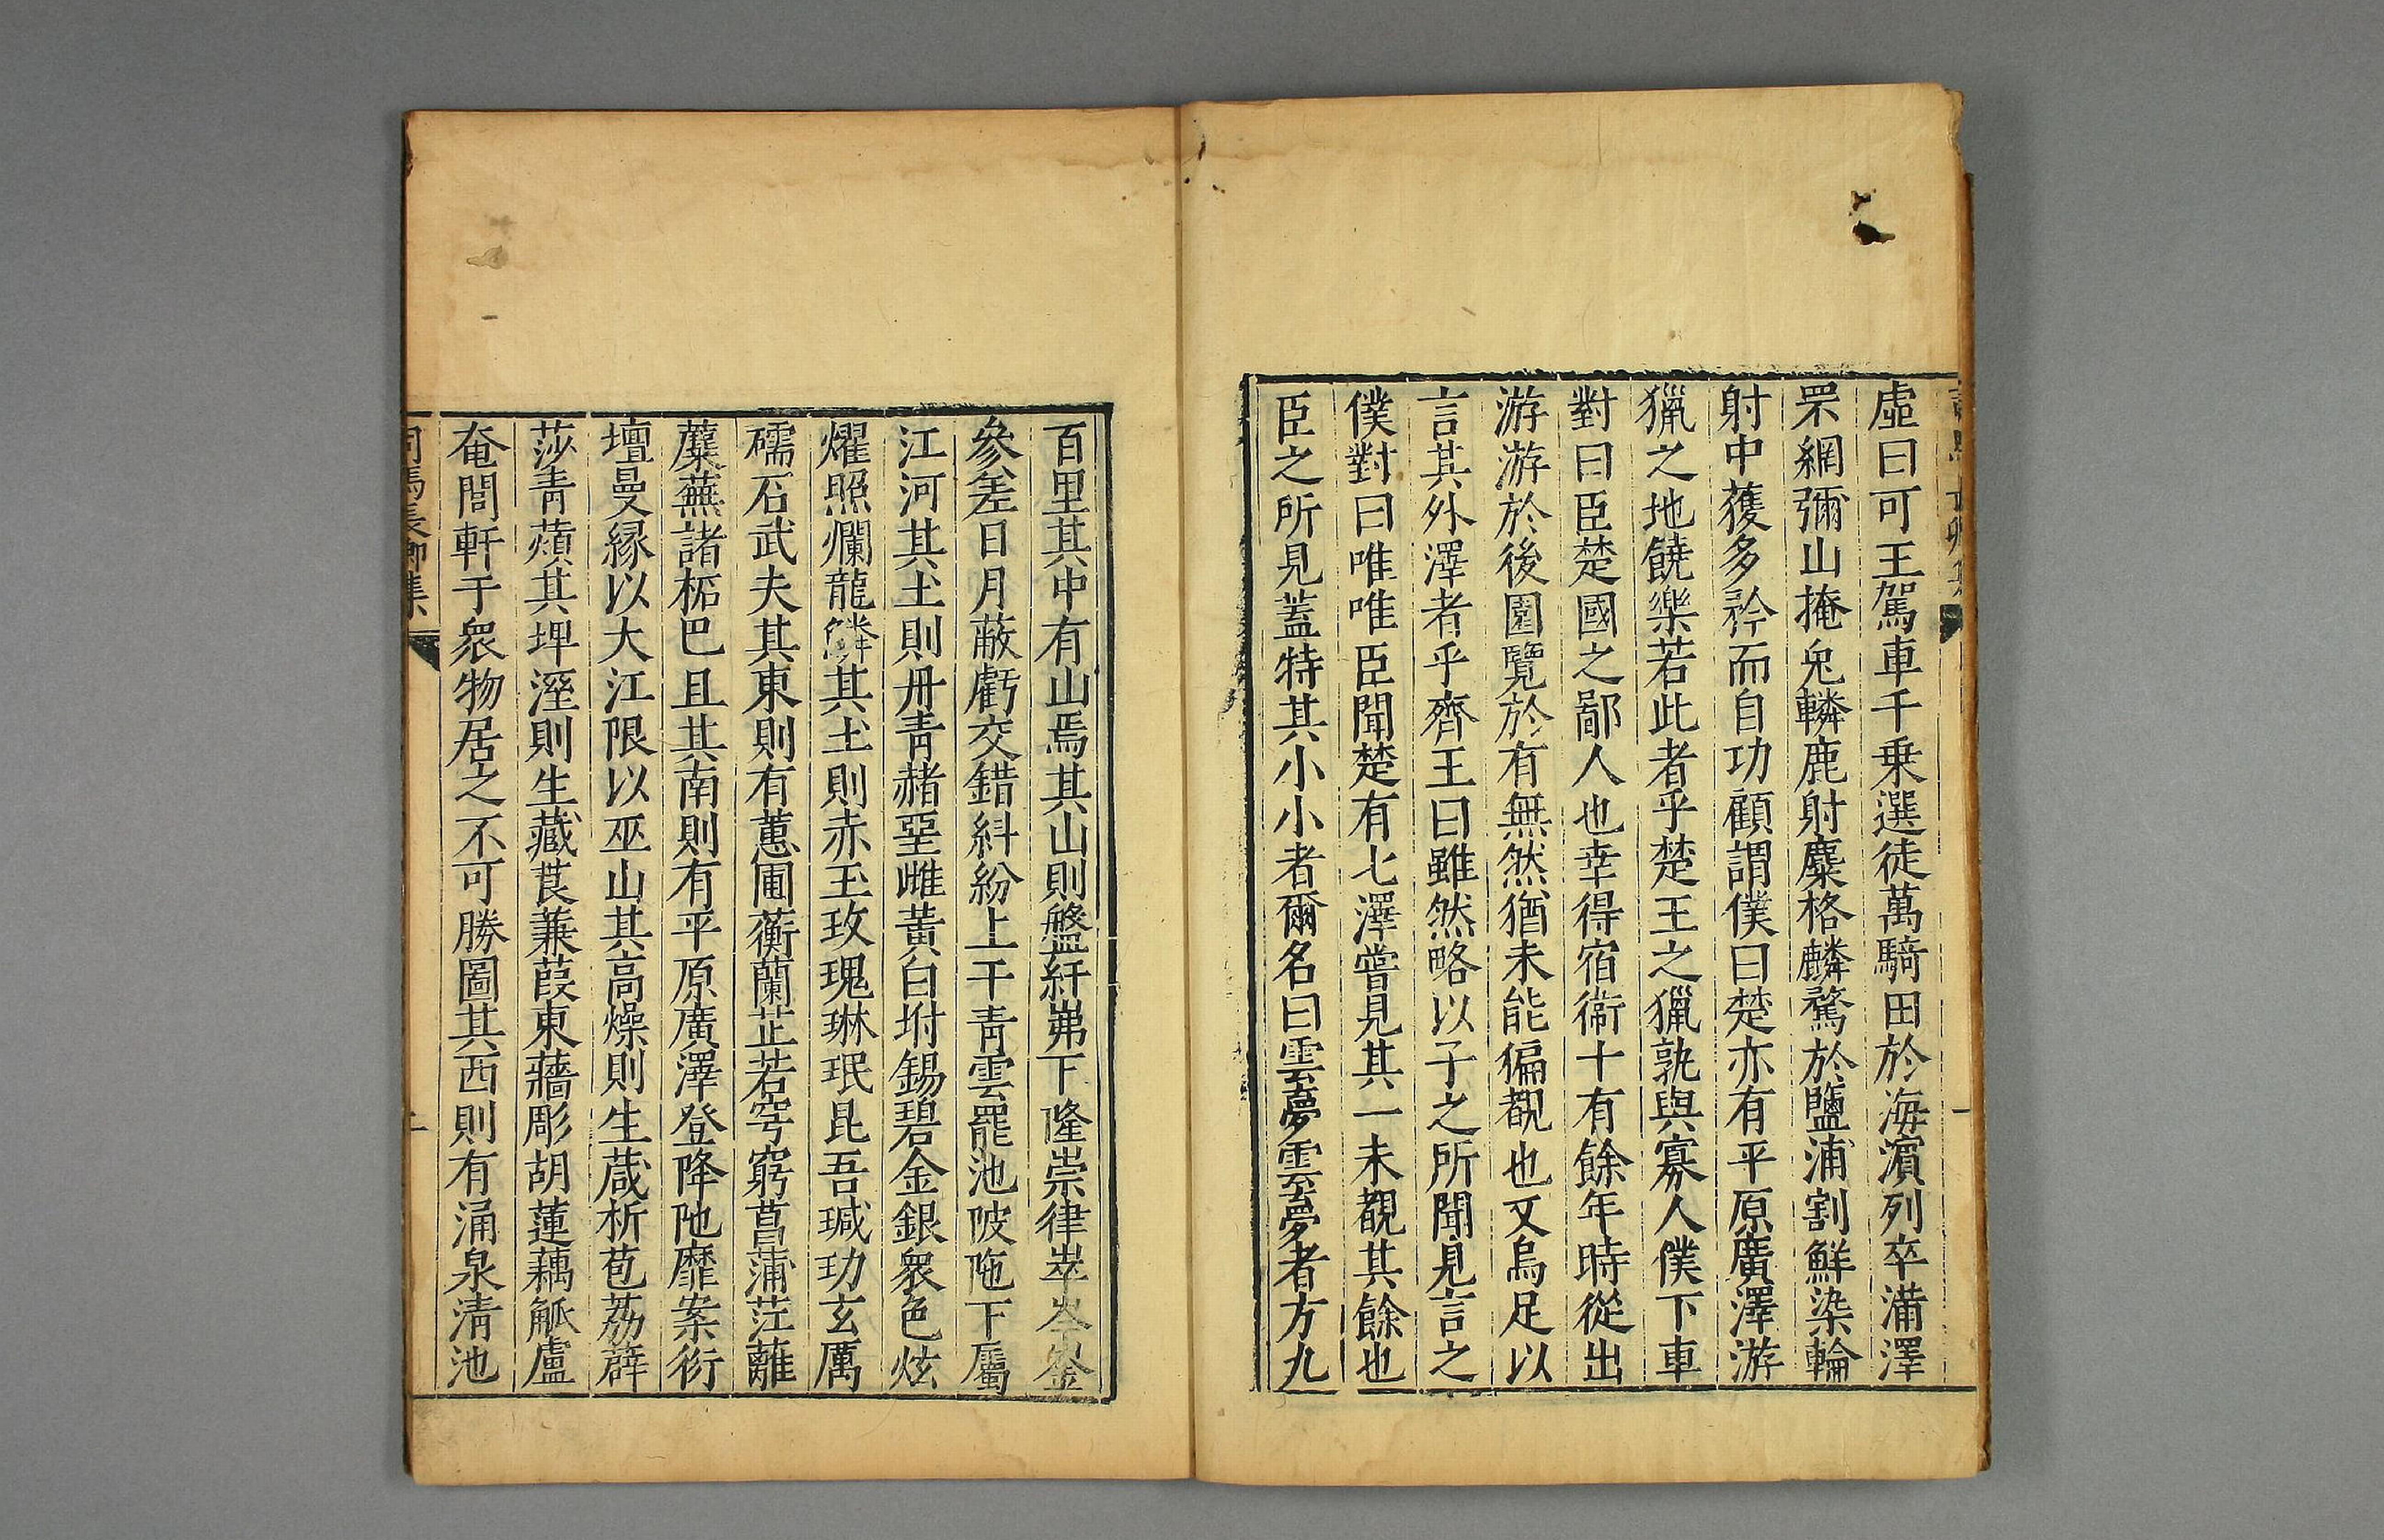 虛曰可王駕車千乗選徒萬騎田於海濱列卒滿澤
罘網彌山掩兔轔鹿射麋格麟騖於鹽浦割鮮染輪
射中獲多矜而自功顧謂僕曰楚亦有平原廣澤游
獵之地饒樂若此者乎楚王之獵孰與寡人僕下車
對曰臣楚國之鄙人也幸得宿衞十有餘年時從出
游游於後園覽於有無然猶未能徧覩也又烏足以
言其外澤者乎齊王曰雖然略以子之所聞見言之
僕對曰唯唯臣聞楚有七澤嘗見其一未覩其餘也
臣之所見蓋特其小小者爾名曰雲夢雲夢者方九
百里其中有山焉其山則盤紆岪下隆崇律崒岑崟
參差日月蔽虧交錯糾紛上干青雲罷池陂陁下屬
江河其土則丹青赭堊雌黃白坿錫碧金銀衆色炫
燿照爛龍鱗其土則赤玉玫瑰琳珉昆吾瑊玏玄厲
碝石武夫其東則有蕙圃蘅蘭芷若穹窮菖蒲茳蘺
蘪蕪諸柘巴且其南則有平原廣澤登降阤靡案衍
壇曼緣以大江限以巫山其高燥則生葴析苞荔薜
莎青薠其埤溼則生藏莨蒹葭東蘠彫胡蓮藕觚盧
奄閭軒于衆物居之不可勝圖其西則有涌泉清池
司馬長卿集
二